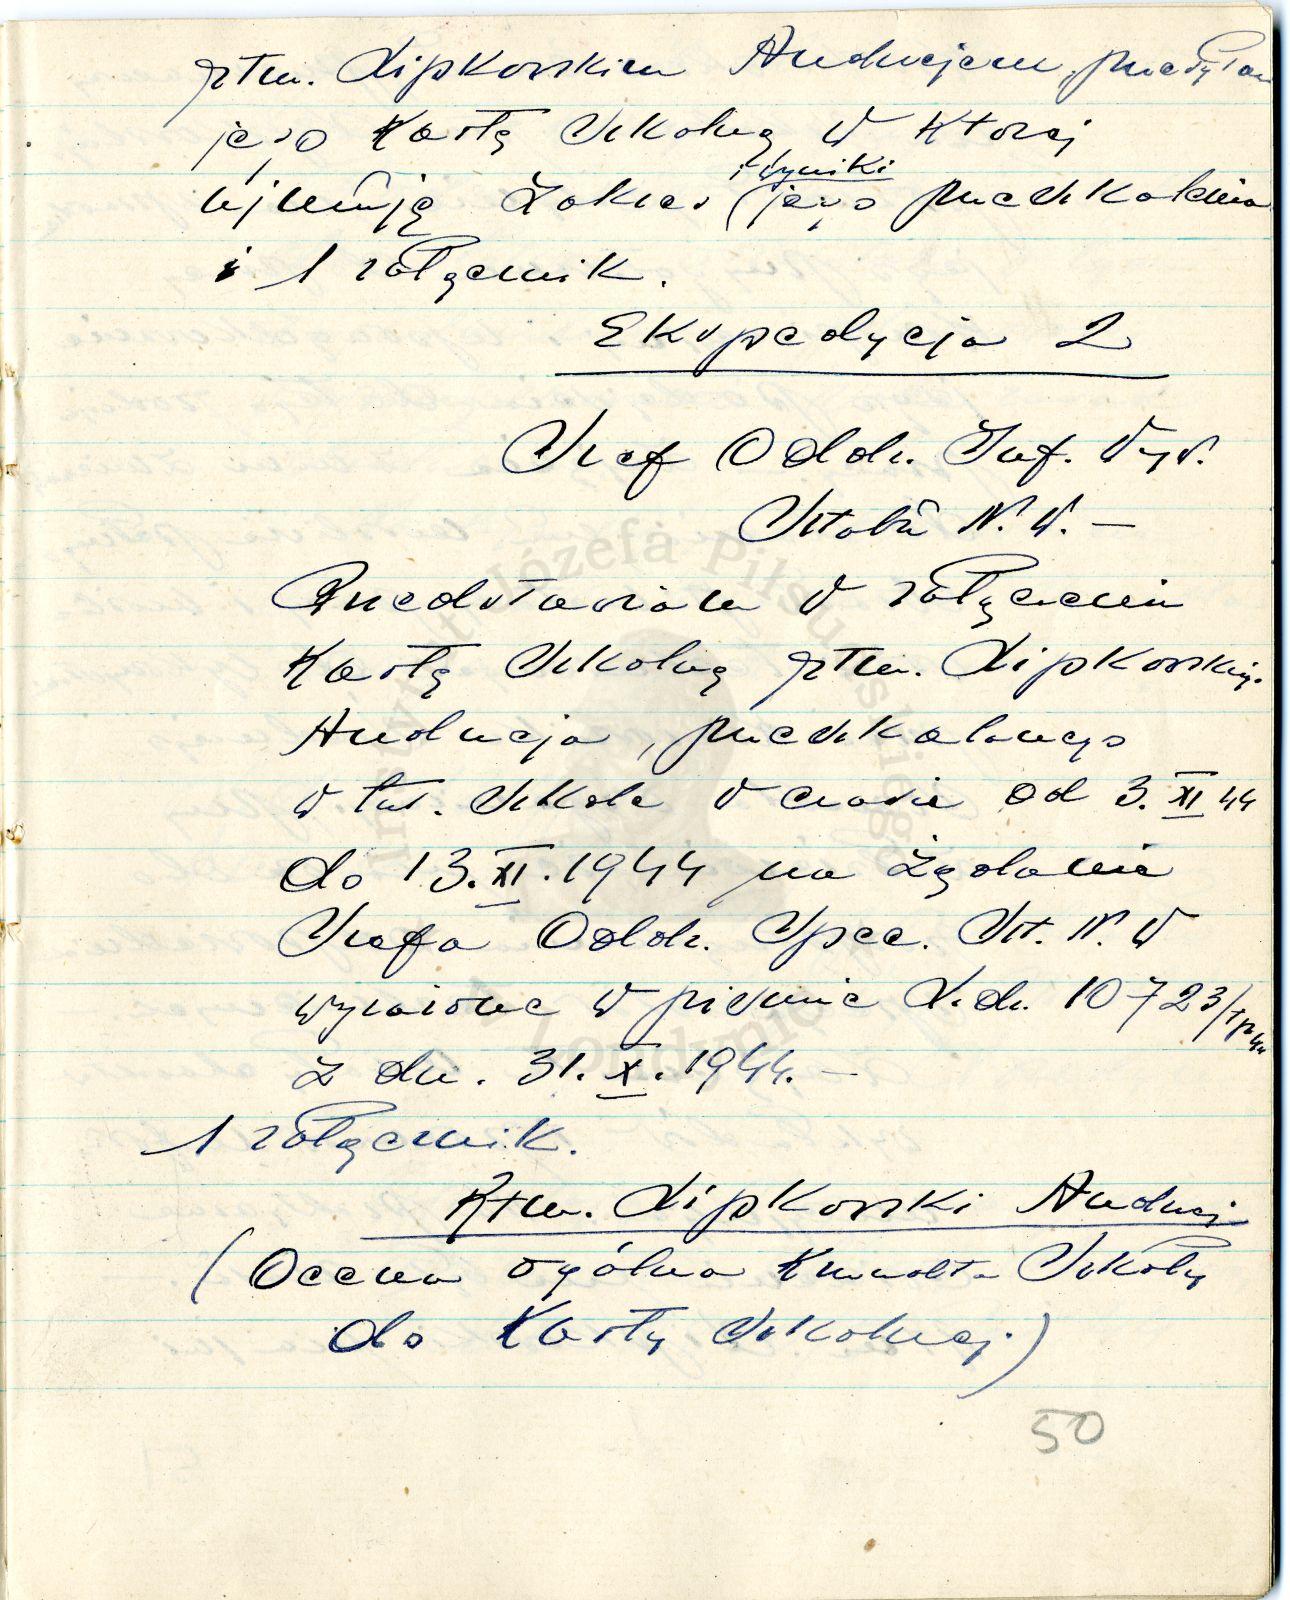 rtm. Lipkowskim Andrzejem, przesyłam
jego Kartę Szkolną w której
i wyniki
ujmuję zakres (jego przeszkolenia
i 1 załącznik.
Ekspedycja 2
Szef Oddz. Inf. Wyw.
Sztabu N. W. –
Przedstawiam w załączeniu
Kartę Szkolną rtm. Lipkowskiego
Andrzeja, przeszkolonego
w tut. Szkole w czasie od 3. XI 44
do 13. XI. 1944 na żądanie
Szefa Oddz. Spec. Szt. N. W
wyrażone w piśmie L.dz. 10723/tjn 44
z dn. 31. X. 1944. –
1 załącznik.
Rtm. Lipkowski Andrzej
(Ocena ogólna Kmndta Szkoły
do Karty Szkolnej.)
50
Instytut Józefa Piłsudskiego
w Londynie